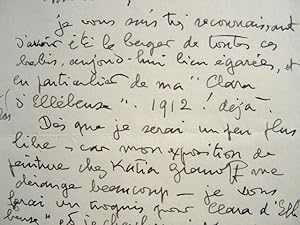 je vous suis très reconnaissant
d'avoir été le berger de toutes ces
brebis, aujourd'hui bien égarées, et
en particulier de ma "Clara
d'Ellébeuse". 1912! déjà.
Dès que je serai un peu plus
libre, car mon exposition de
peinture chez Katia Granoff me
dérange beaucoup — je vous
ferai un croquis pour Clara d'Ellé
beuse" et je